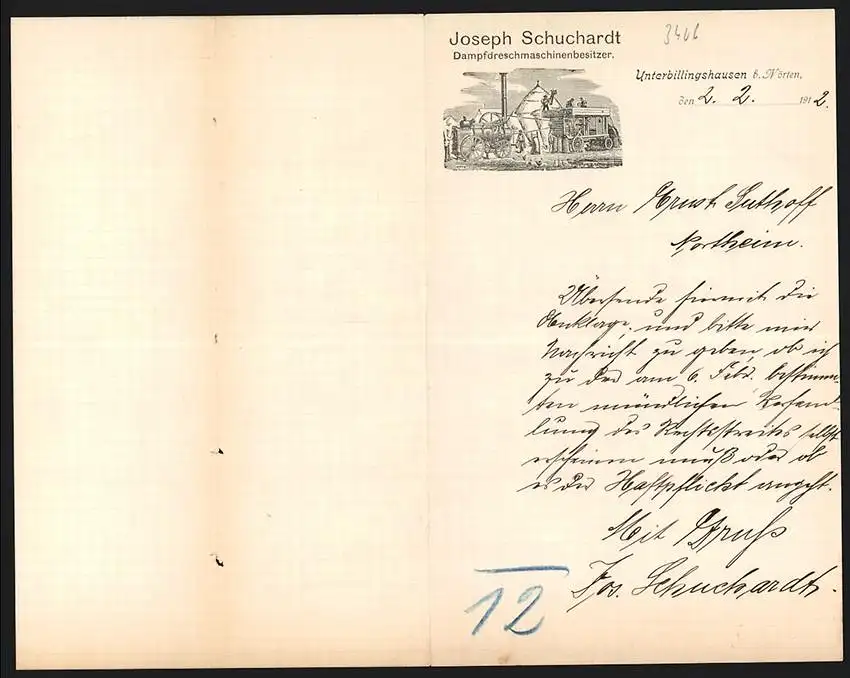 3406
Joseph Schuchardt
Dampfdreschmaschinenbesitzer.
Unterbillingshausen b. Nörten,
den 2. 2. 1912.
Herrn Ernst Suthoff
Northeim.
Übersende hiermit die
und bitte mir
Nachricht zu geben, ob ich
zu der am 6. Febr. bestimm-
ten mündlichen Verhand-
lung des Rechtsstreits selbst
erscheinen muß oder ob
es der Haftpflicht angeht.
Mit Gruß
Jos. Schuchardt.
12